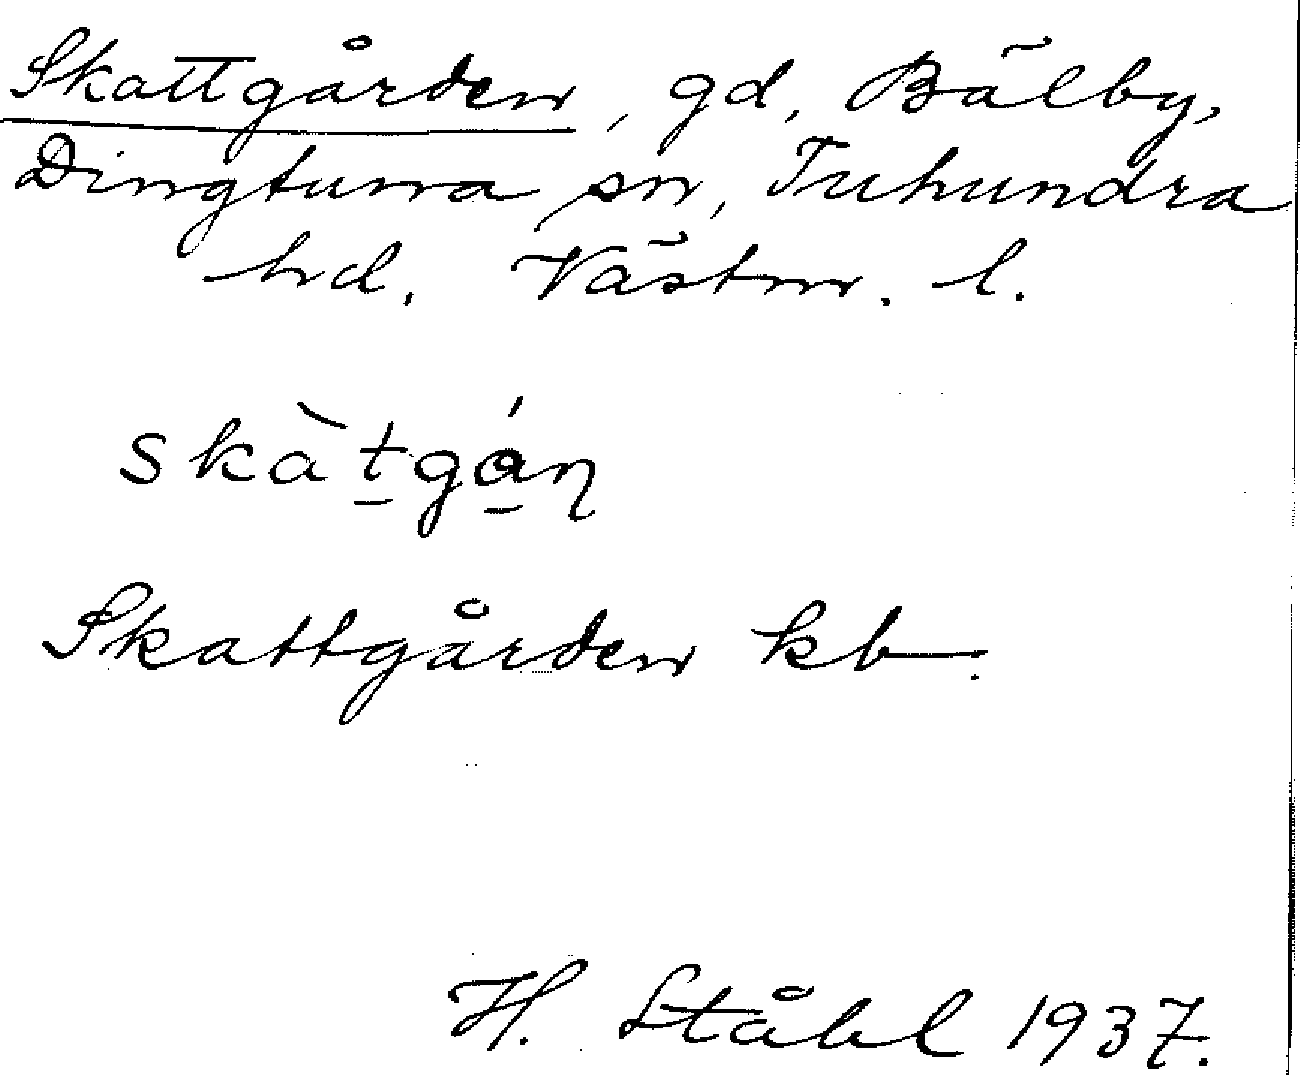 Skattgården, gd, Bälby,
Dingtuna sn, Tuhundra
hd. Västm. l.
skàt̲gá̲ɳ
Skattgården kb.
H. Ståhl 1937.